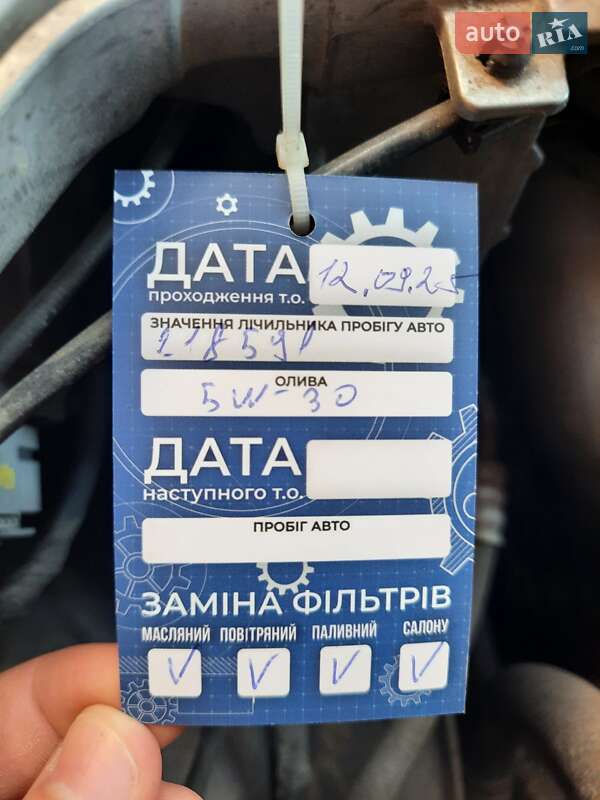 auto RIA.com
ДАТА 12.09.25
проходження т.о.
ЗНАЧЕННЯ ЛІЧИЛЬНИКА ПРОБІГУ АВТО
218591
ОЛИВА
5W-30
ДАТА
наступного т.о.
ПРОБІГ АВТО
ЗАМІНА ФІЛЬТРІВ
МАСЛЯНИЙ ПОВІТРЯНИЙ ПАЛИВНИЙ САЛОНУ